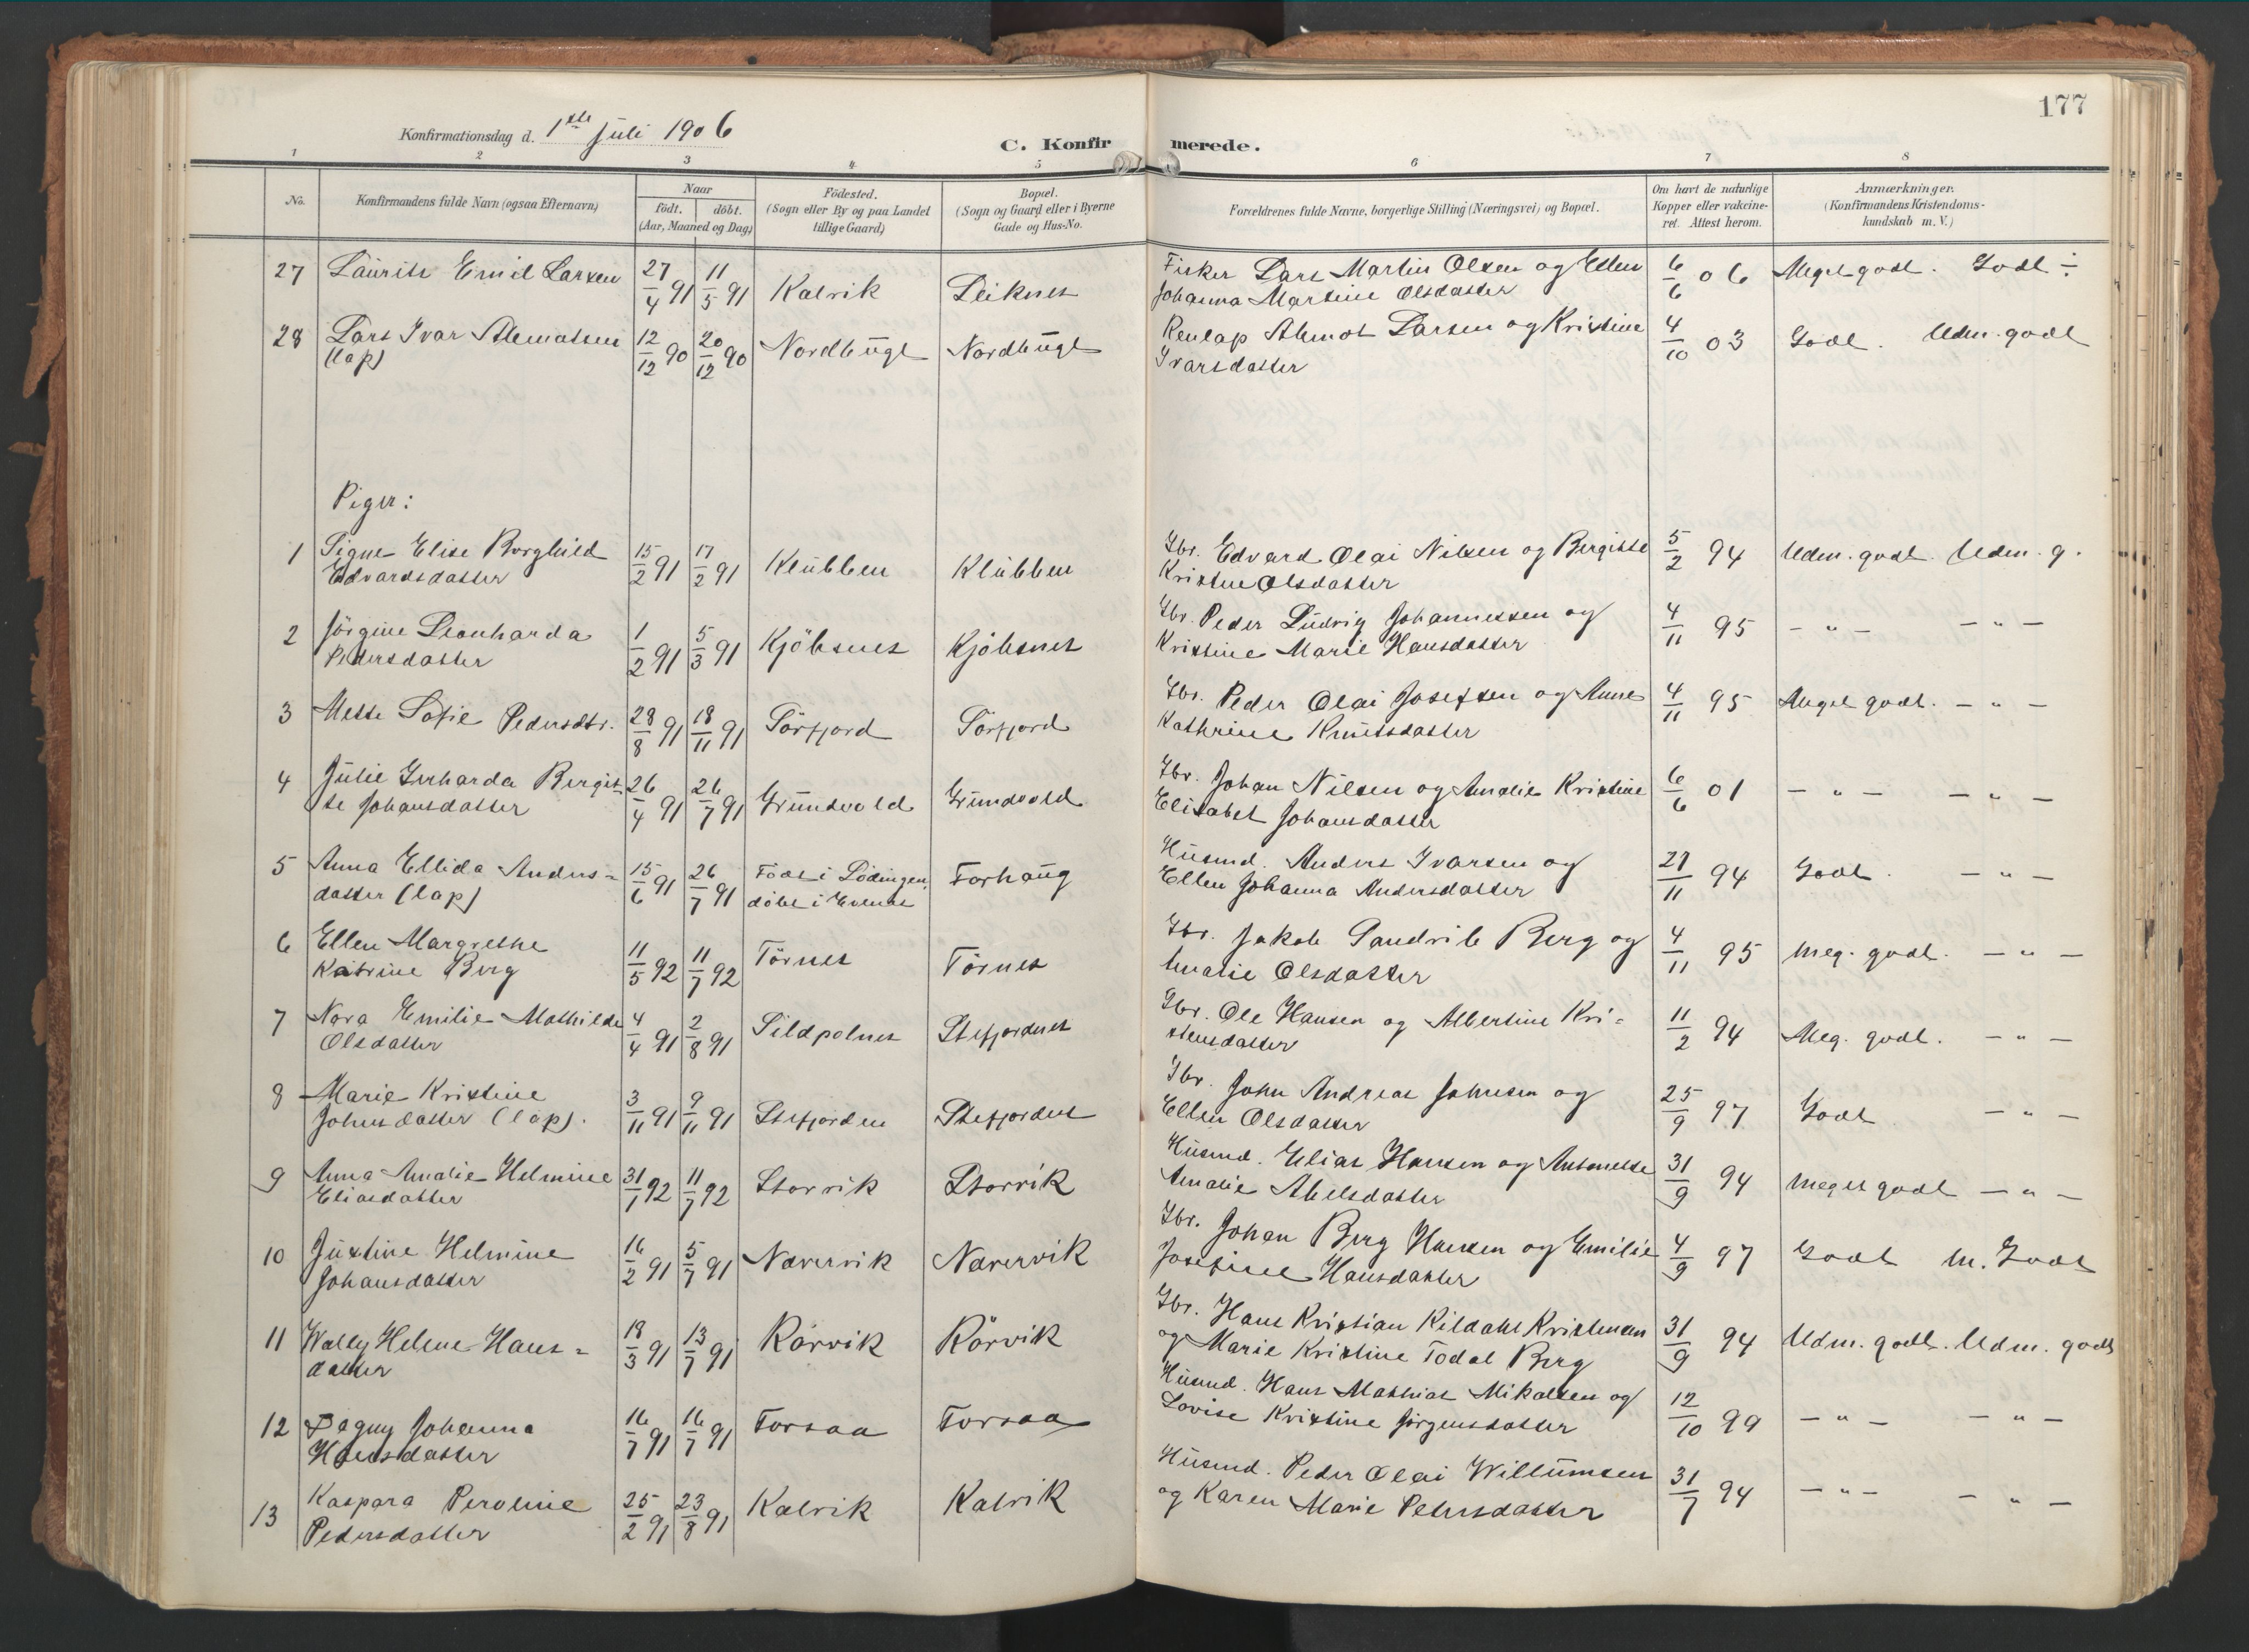 177
Konfirmationsdag d. 1ste Juli 1906
C. Konfirmerede.
1 2 3 4 5 6 7 8
No. Konfirmandens fulde Navn (ogsaa Efternavn) Naar født. døbt. (Aar, Maaned og Dag) Födested. (Sogn eller By og paa Landet tillige Gaard) Bopæl. (Sogn og Gaard eller i Byerne Gade og Hus-No. Forældrenes fulde Navne, borgerlige Stilling (Næringsvei) og Bopæl. Om havt de naturlige Kopper eller vakcineret. Attest herom. Anmærkninger. (Konfirmandens Kristendomskundskab m. V.)
27 Laurits Emil Larsen 27/4 91 11/5 91 Kalvik Leiknes Fisker Lars Martin Olsen og Ellen 6/6 06 Meget godt. Godt ÷
Johanna Martine Olsdatter
28 Lars Ivar Alemotsen 12/12 90 20/12 90 Nordbugt Nordbugt Renlap Alemot Larsen og Kristine 4/10 03 Godt. Udm. godt
(lap) Ivarsdatter
Piger:
1 Signe Elise Borghild 15/2 91 17/2 91 Klubben Klubben Gbr. Edvard Olai Nilsen og Bergitte 5/2 94 Udm. godt. Udm. g.
Edvardsdatter Kristine Olsdatter
2 Jörgine Leonharda 1/2 91 5/3 91 Kjöbsnes Kjöbsnes Gbr. Peder Ludvig Johannessen og 4/11 95 - " - - " -
Pedersdatter Kristine Marie Hansdatter
3 Mette Sofie Pedersdtr. 28/8 91 18/11 91 Sörfjord Sörfjord Gbr. Peder Olai Josefsen og Anne 4/11 95 Meget godt. - " -
Kathrine Knutsdatter
4 Julie Gerharda Bergit- 26/4 91 26/7 91 Grundvold Grundvold Gbr. Johan Nilsen og Amalie Kristine 6/6 01 - " - - " -
te Johansdatter Elisabet Johansdatter
5 Anna Ellida Anders= 15/6 91 26/7 91 Födt i Lödingen, Forhaug Husmd. Anders Ivarsen og 27/11 94 Godt. - " -
datter (lap) döbt i Evenes Ellen Johanna Andersdatter
6 Ellen Margrethe 11/5 92 11/7 92 Törnes Törnes Gbr. Jakob Sandvik Berg og 4/11 95 Meg. godt. - " -
Katrine Berg Amalie Olsdatter
7 Nora Emilie Mathilde 4/4 91 2/8 91 Sildpolnes Stefjordnes Gbr. Ole Hansen og Albertine Kri= 11/2 94 Meg. godt. - " -
Olsdatter stensdatter
8 Marie Kristine 3/11 91 9/11 91 Stefjorden Stefjorden Gbr. John Andreas Johnsen og 25/9 97 Godt - " -
Johnsdatter (lap). Ellen Olsdatter
9 Anna Amalie Helmine 31/1 92 11/7 92 Storvik Storvik Husmd. Elias Hansen og Antonette 31/9 94 Meget godt - " -
Eliasdatter Amalie Abelsdatter
10 Justine Helmine 16/2 91 5/7 91 Næversvik Næversvik Gbr. Johan Berg Hansen og Emilie 4/9 97 Godt M. Godt
Johansdatter Josefine Hansdatter
11 Wally Helene Hans= 18/3 91 13/7 91 Rörvik Rörvik Gbr. Hans Kristian Kildahl Kristensen 31/9 94 Udm. godt. Udm. godt
datter og Marie Kristine Todal Berg
12 Dagny Johanna 16/7 91 16/7 91 Forsaa Forsaa Husmd. Hans Mathias Mikalsen og 12/10 99 - " - - " -
Hansdatter Lovise Kristine Jörgensdatter
13 Kaspara Peroline 25/2 91 23/8 91 Kalvik Kalvik Husmd. Peder Olai Willumsen 31/7 94 - " - - " -
Pedersdatter og Karen Marie Petersdatter